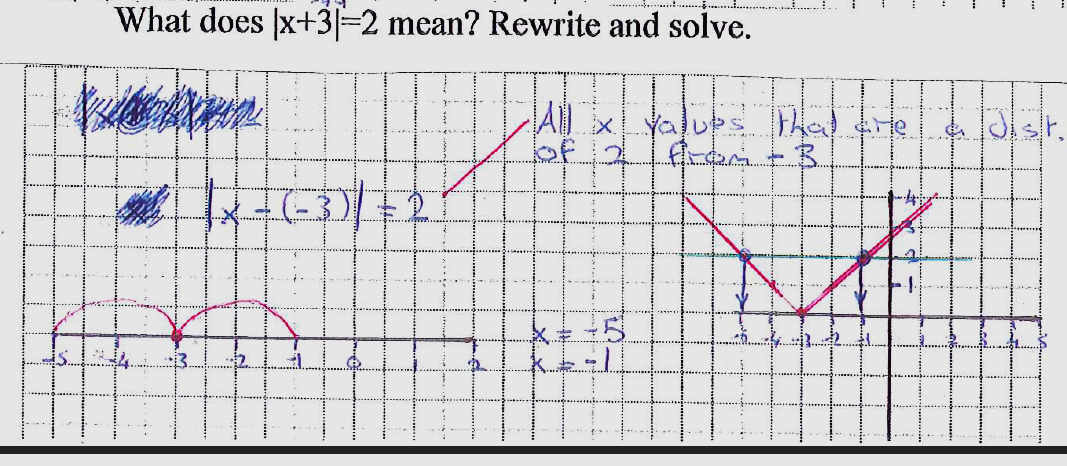 What does |x+3|=2 mean? Rewrite and solve.
All x values that are a dist.
of 2 from -3
|x-(-3)|=2
4
3
2
1
x = -5
x = -1
-5 -4 -3 -2 -1 0 1 2
-5 -4 -3 -2 -1 1 2 3 4 5